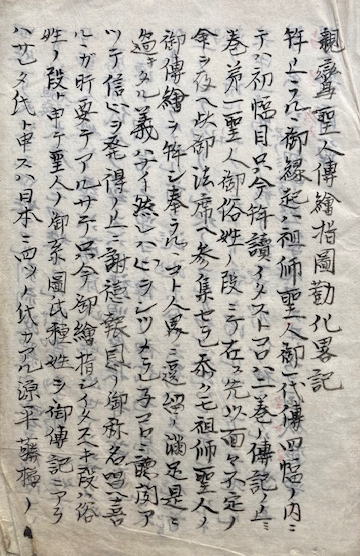 親鸞聖人傳繪指圖勸化畧記
拜上ラルヽ御縁起ハ祖師聖人御一代傳四幅ノ内ニ
テハ初幅目只今拜讀イタストコロハ二巻ノ傳記ノ上ミ
巻第一聖人御俗姓ノ段ミテ右ハ先以面々不定ノ
命ヲ以ヘ此御法席ヘ参集セラレ忝クモ祖師聖人ノ
御傳繪ヲ拜シ奉ラルヽコト人界ニ還留ノ満足是ニ
過キタル義ハナイ然レハ心ヲシツメラレテコマコマニ聴聞ア
ツテ信心ヲ発得ノ上ニ謝徳報恩ノ御称名喝喜
ルヽガ肝要テアルサテ只今御繪指シイタスヘキ段ハ俗
姓ノ段ト申テ聖人ノ御系圖氏種姓ヲ御傳記アラ
ハサレタ代ト申スハ日本ニ四ツノ氏カアル源平藤橘ノ